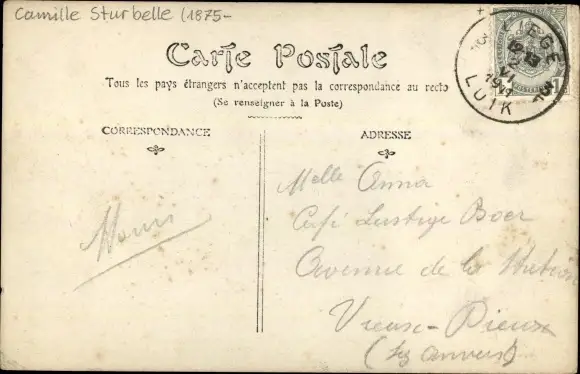 Camille Sturbelle (1875-
Carte Postale
Tous les pays étrangers n'acceptent pas la correspondance au recto
(Se renseigner à la Poste)
CORRESPONDANCE
ADRESSE
LIEGE
1911
LUIK
Melle Anna
Café Lustige Boer
Avenue de la
Vieux-Dieux
(lez Anvers)